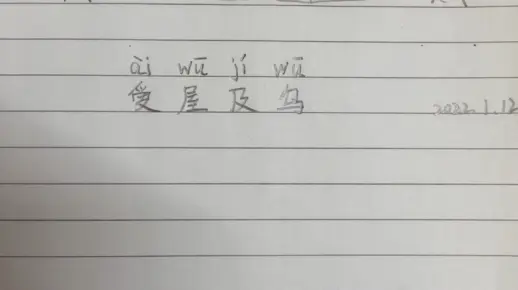 ài wū jí wū
爱屋及乌 2022.1.12